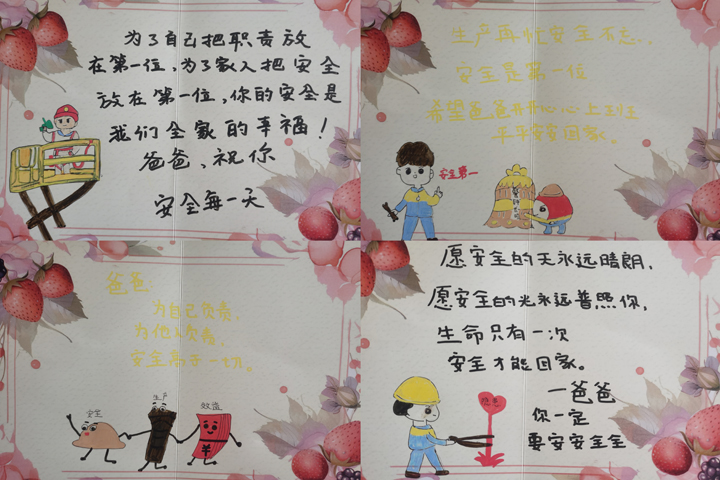 为了自己把职责放
在第一位,为了家人把安全
放在第一位,你的安全是
我们全家的幸福!
爸爸,祝你
安全每一天
生产再忙安全不忘..
安全是第一位
希望爸爸开开心心上班
平平安安回家。
安全第一
爸爸:
为自己负责,
为他人负责,
安全高于一切。
安全
生产
效益
¥
愿安全的天永远晴朗,
愿安全的光永远普照你,
生命只有一次
安全才能回家。
一爸爸
你一定
要安安全全
隐患